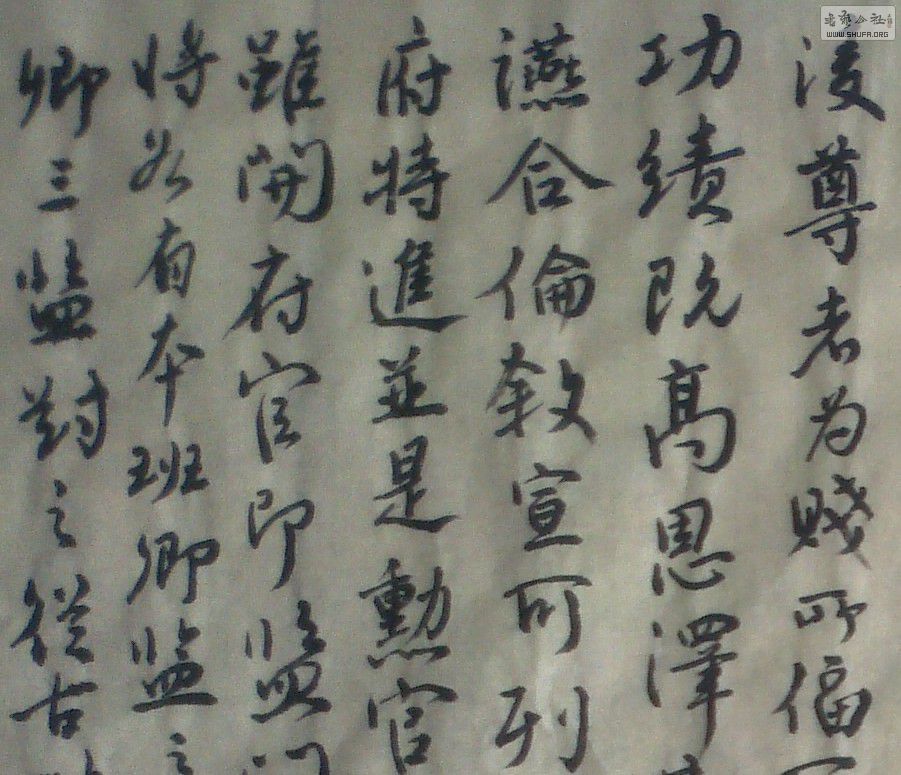 陵尊者为賤所偪
功績既高恩澤
讌合倫敘宣可列
府特進並是勳官
雖開府官即監門
将如有本班卿監之
卿三监對之從古
WWW.SHUFA.ORG